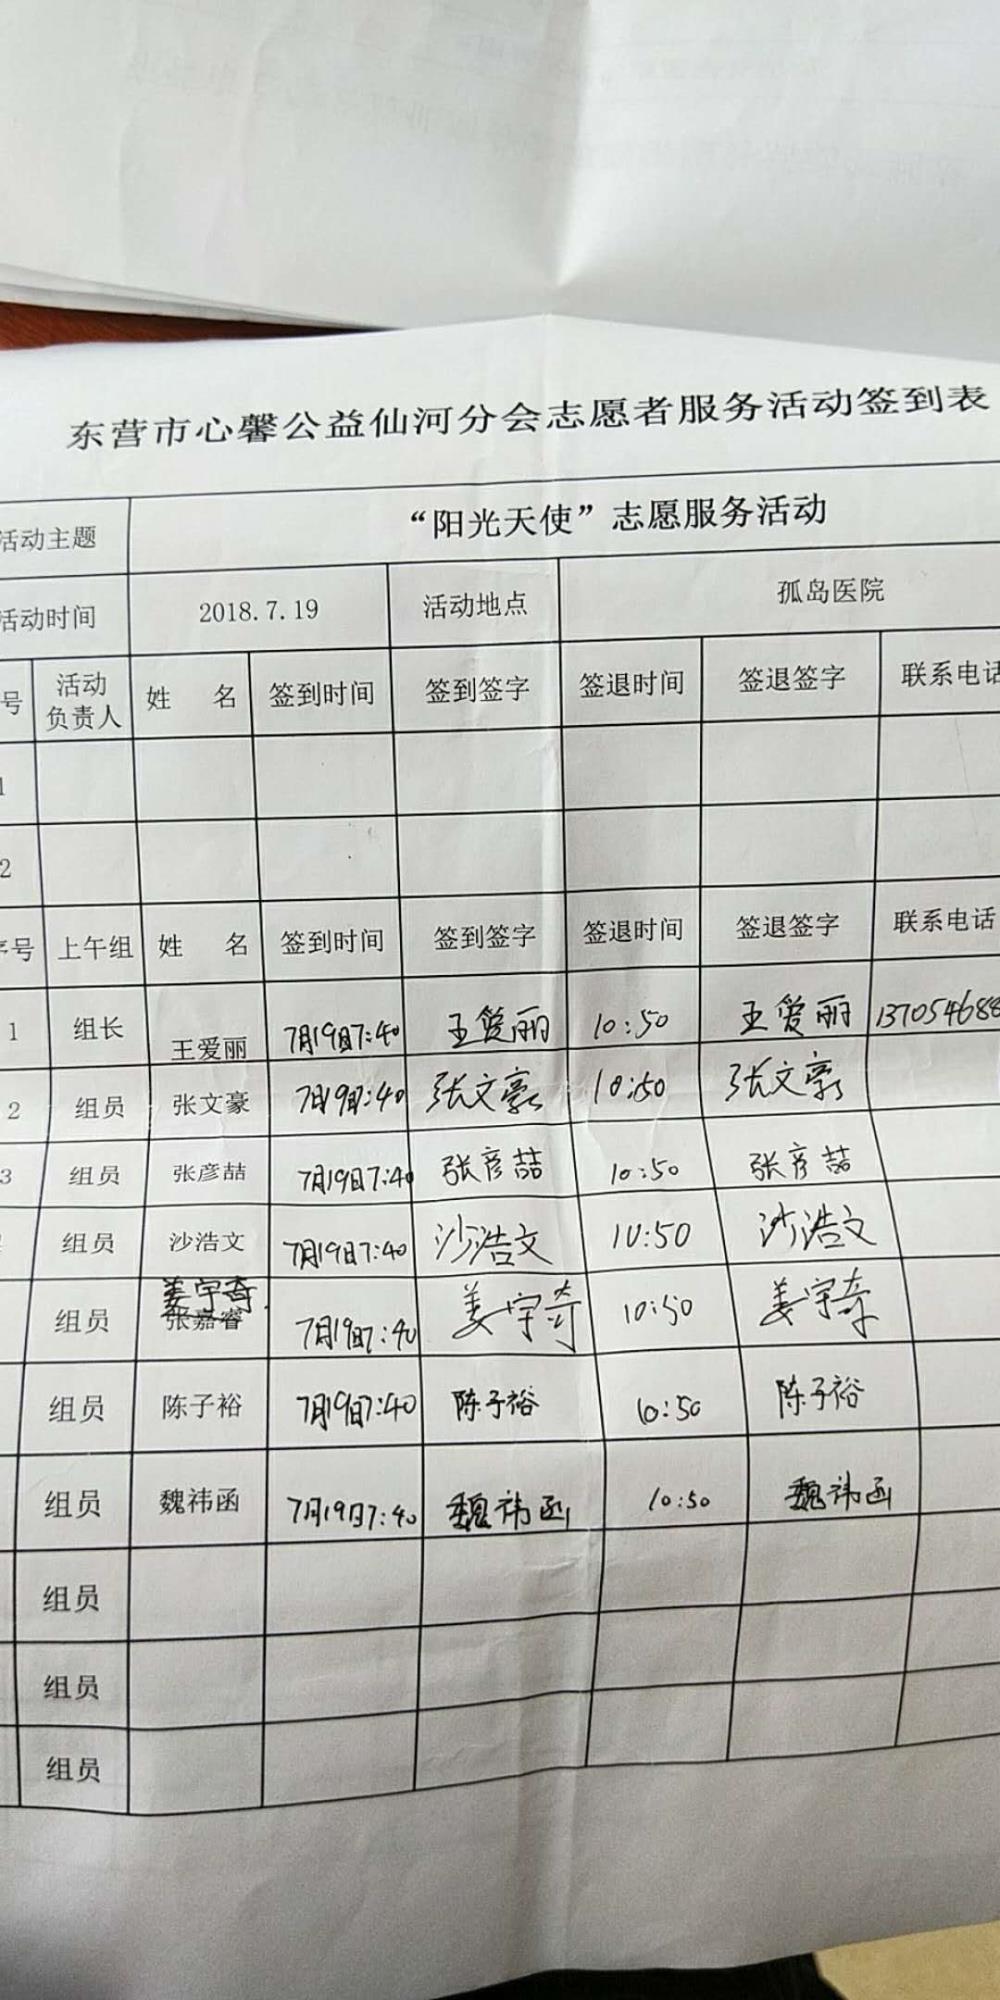 东营市心馨公益仙河分会志愿者服务活动签到表
活动主题 “阳光天使”志愿服务活动
活动时间 2018.7.19 活动地点 孤岛医院
号 活动负责人 姓 名 签到时间 签到签字 签退时间 签退签字 联系电话
1
2
序号 上午组 姓 名 签到时间 签到签字 签退时间 签退签字 联系电话
1 组长 王爱丽 7月19日7:40 王爱丽 10:50 王爱丽 137054688
2 组员 张文豪 7月19日7:40 张文豪 10:50 张文豪
3 组员 张彦喆 7月19日7:40 张彦喆 10:50 张彦喆
组员 沙浩文 7月19日7:40 沙浩文 10:50 沙浩文
姜宇奇
组员 张嘉睿 7月19日7:40 姜宇奇 10:50 姜宇奇
组员 陈子裕 7月19日7:40 陈子裕 10:50 陈子裕
组员 魏祎函 7月19日7:40 魏祎函 10:50 魏祎函
组员
组员
组员